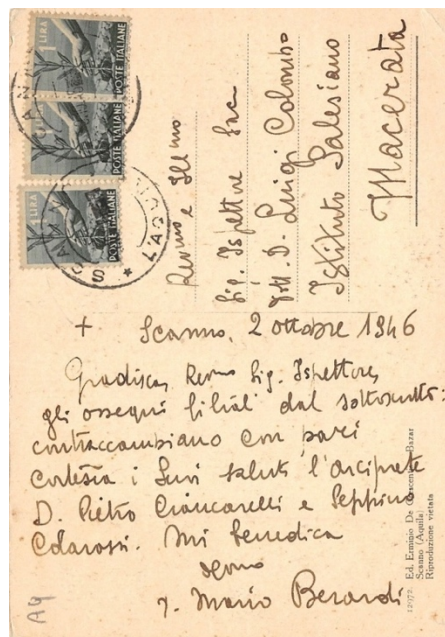 1 LIRA
POSTE ITALIANE
1 LIRA
POSTE ITALIANE
1 LIRA
POSTE ITALIANE
L'AQUILA
Revmo e Illmo
Sig. Ispettore Sac
Dott. D. Luigi Colombo
Istituto Salesiano
Macerata
+ Scanno, 2 ottobre 1946
Gradisca, Revmo Sig. Ispettore,
gli ossequi filiali dal sottoscritto:
contraccambiano con pari
cortesia i Suoi saluti l'arciprete
D. Pietro Ciancarelli e Peppino
Colarossi. Mi benedica
Mario Berardi
12072. Ed. Erminio De Crescentis - Bazar
Scanno (Aquila)
Riproduzione vietata
A9